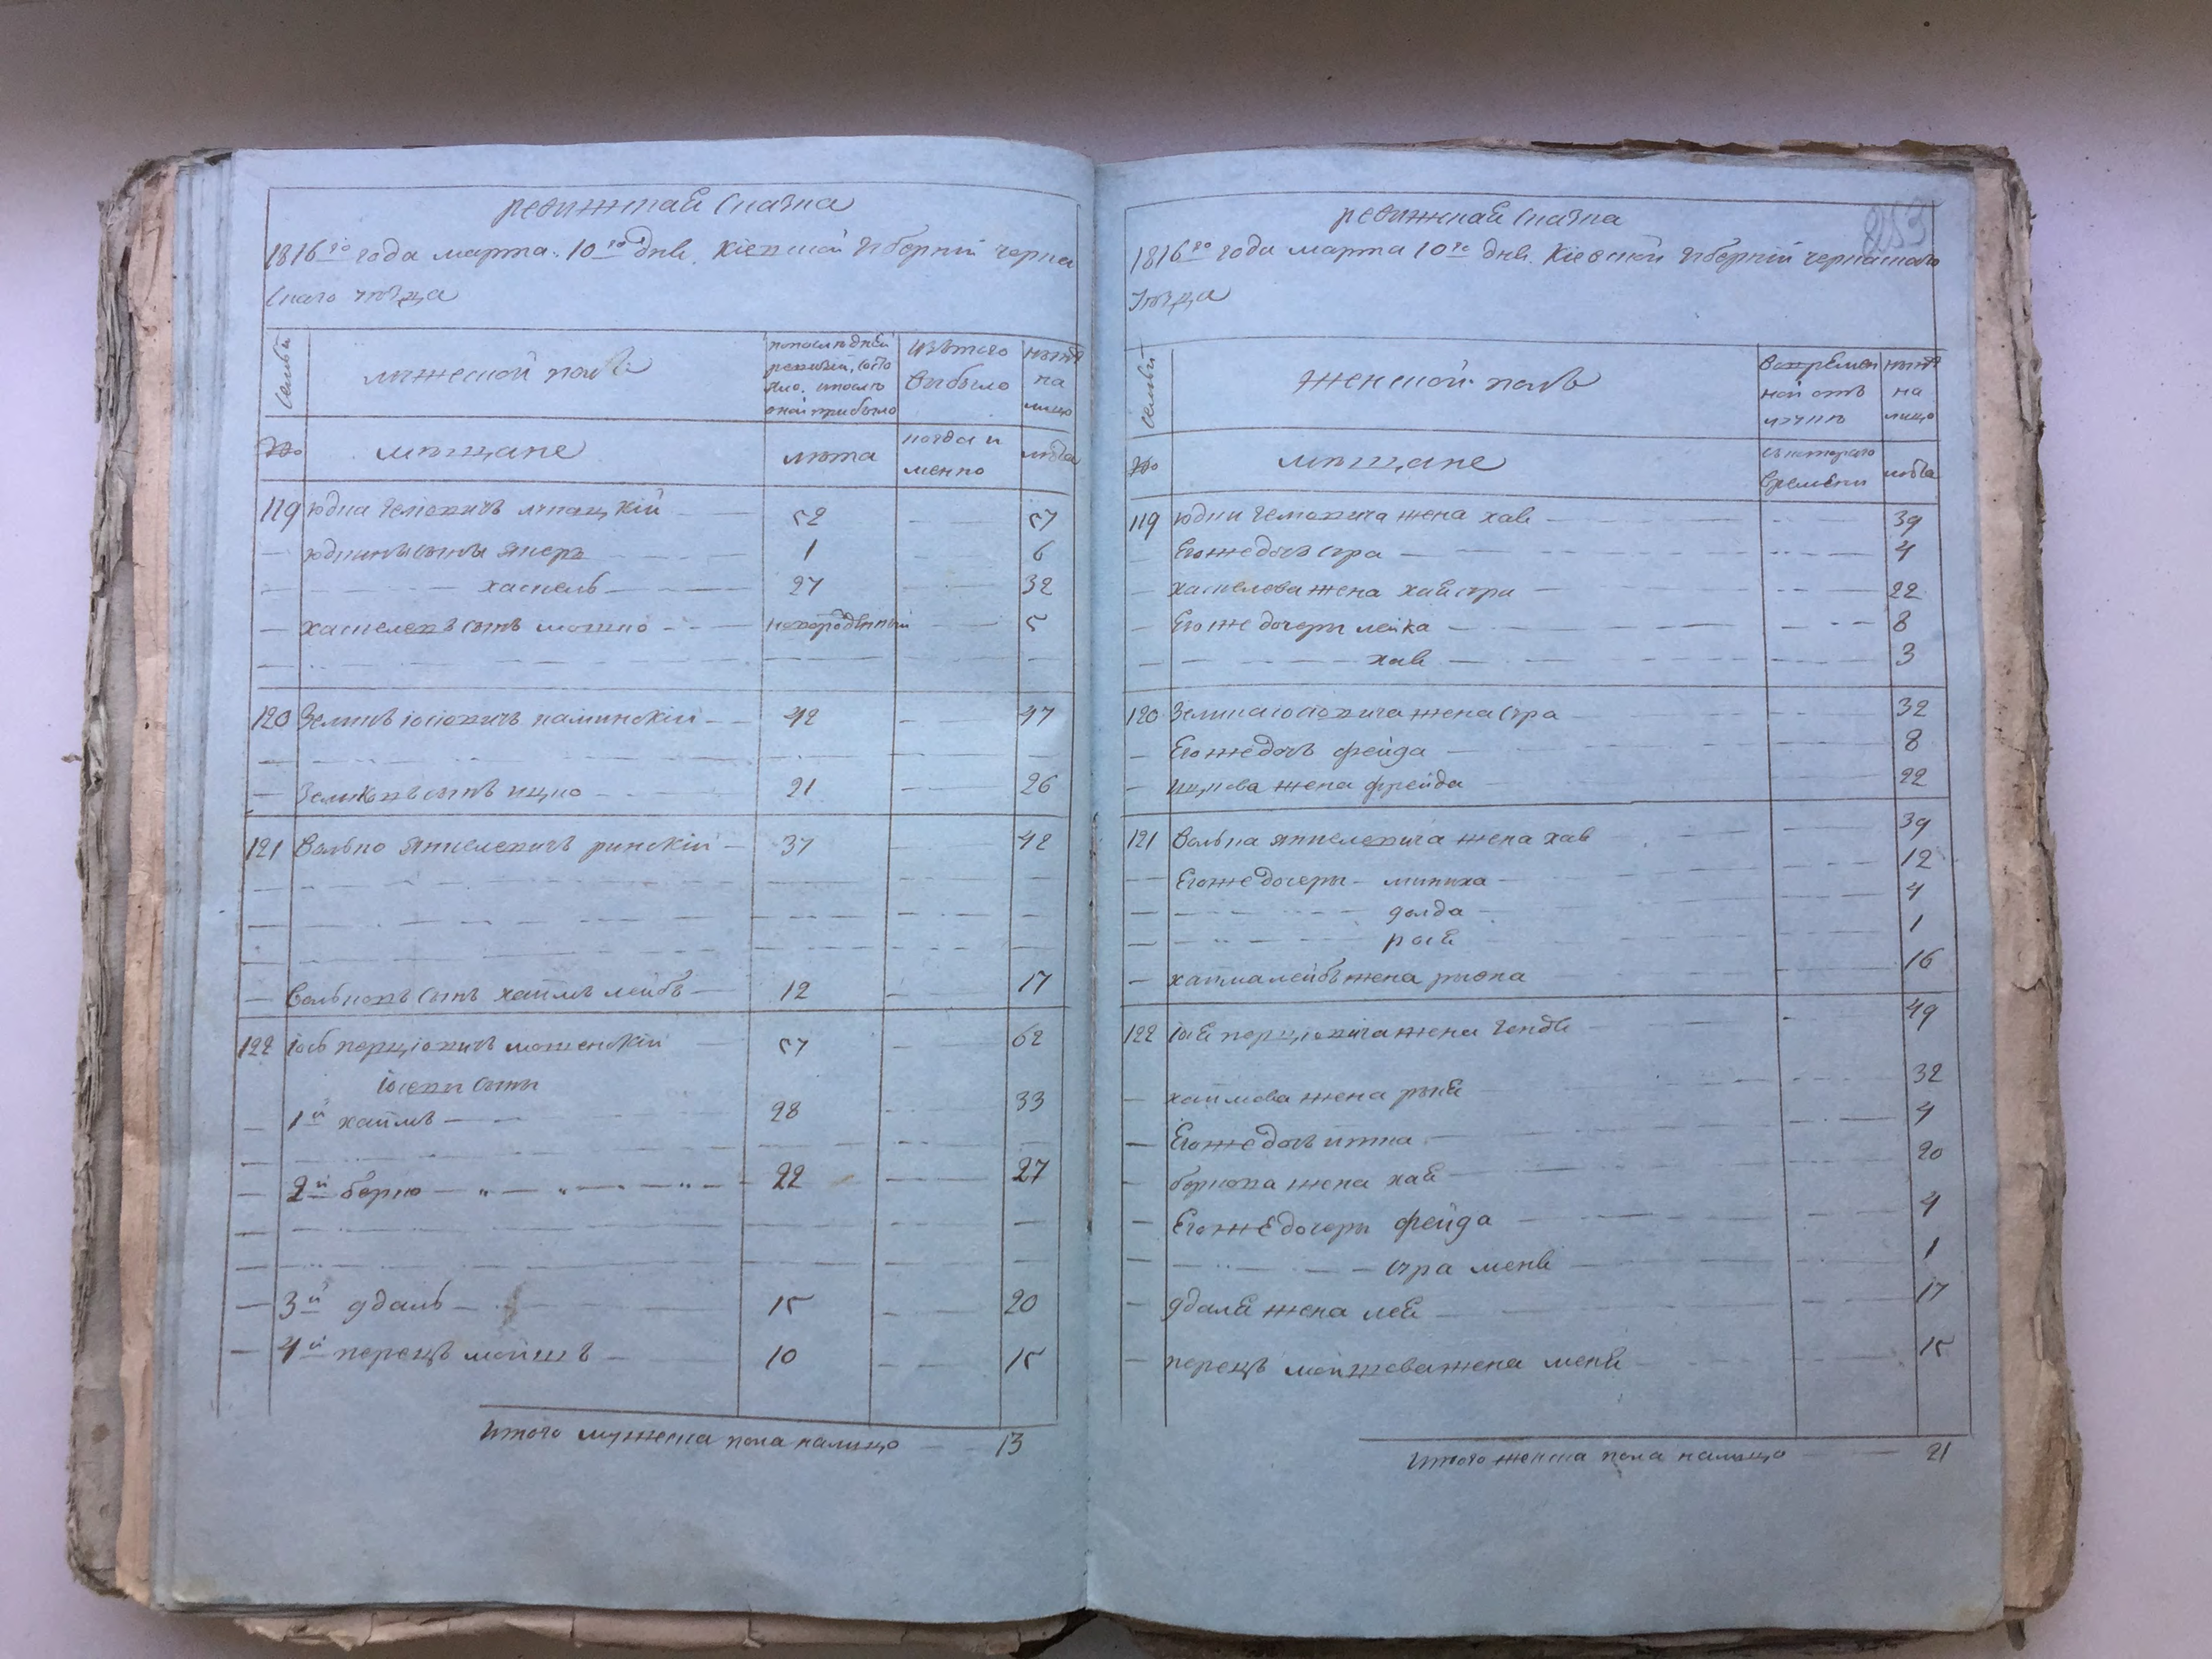 ревижская сказка
1816го года марта 10го дня. Кіевской губерніи черка
скаго уѣзда
семьи
мужеской полъ
попослѣдней
ревизіи, состо
яло. ипослѣ
оной прибыло
изъ того
выбыло
нынѣ
на
лицо
№
мѣщане
лѣта
когда и
менно
лѣта
119 юдка
52 57
юдкины сыны янкеръ 1 6
хаскель 27 32
хаскелевъ сынъ мошко новорожденный 5
120 Зеликъ іосіовичъ каминскій 42 47
Зеликовъ сынъ ицко 21 26
121 Волько янкелевичъ ринскій 37 42
Вольковъ сынъ хаимъ лейбъ 12 17
122 іось перціовичъ мошенскій 57 62
іосевы сыны
1й хаимъ 28 33
2й берко 22 27
3й удаль 15 20
4й перецъ мойшъ 10 15
Итого мужеска пола налицо 13
253
ревижская сказка
1816го года марта 10го дня. Кіевской губерніи черкаскаго
уѣзда
семьи
женской полъ
Вовремен
ной отъ
лучкѣ
нынѣ
на
лицо
№
мѣщане
съ котораго
времени
лѣта
119 юдки жена хая 39
Его же дочь сура 4
хаскелева жена хая сура 22
Его же дочери лейка 8
хая 3
120 Зелика іосіовича жена сура 32
Его же дочь фейга 8
ицкова жена фрейда 22
121 Волька янкелевича жена хая 39
Его же дочери
12
голда 4
рося 1
хаима лейбъ жена рывка 16
122 іося перціовича жена гендя 49
хаимова жена
32
Его же дочь итка 4
беркова жена хая 20
Его же дочери фейга 4
сура меня 1
удаля жена лея 17
перецъ мойшова жена меня 15
Итого женска пола налицо 21